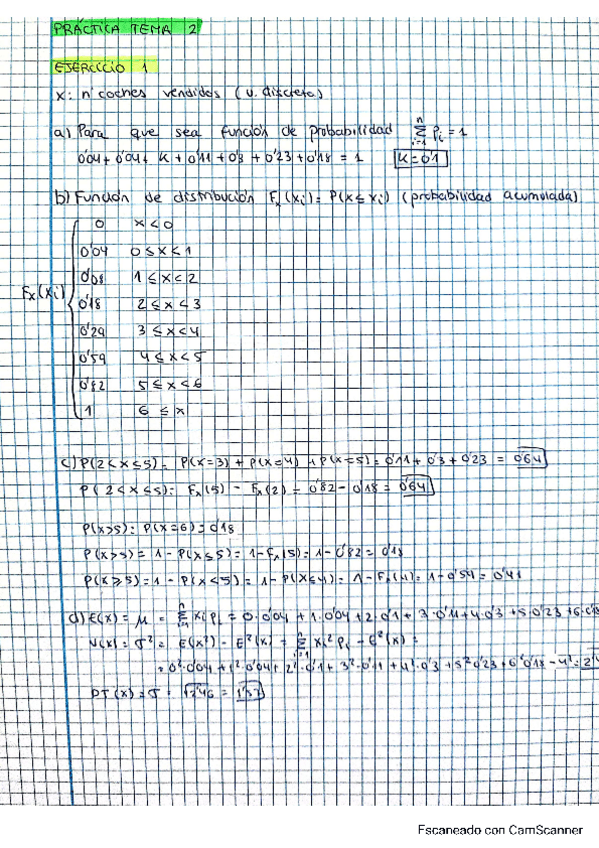 PRÁCTICA TEMA 2
EJERCICIO 1
X: nº coches vendidos (v. discreta)
a) Para que sea función de probabilidad n Σ i=1 Pi = 1
0'04 + 0'04 + K + 0'11 + 0'3 + 0'23 + 0'18 = 1 K = 0'1
b) Función de distribución Fx(xi) = P(X ≤ xi) (probabilidad acumulada)
0 x < 0
0'04 0 ≤ x < 1
0'08 1 ≤ x < 2
Fx(xi) 0'18 2 ≤ x < 3
0'29 3 ≤ x < 4
0'59 4 ≤ x < 5
0'82 5 ≤ x < 6
1 6 ≤ x
c) P(2 < x ≤ 5) = P(x=3) + P(x=4) + P(x=5) = 0'11 + 0'3 + 0'23 = 0'64
P(2 < x ≤ 5) = Fx(5) - Fx(2) = 0'82 - 0'18 = 0'64
P(x>5) = P(x=6) = 0'18
P(x>5) = 1 - P(x≤5) = 1 - Fx(5) = 1 - 0'82 = 0'18
P(x≥5) = 1 - P(x<5) = 1 - P(x≤4) = 1 - Fx(4) = 1 - 0'59 = 0'41
d) E(x) = μ = n Σ i=1 xi Pi = 0·0'04 + 1·0'04 + 2·0'1 + 3·0'11 + 4·0'3 + 5·0'23 + 6·0'18
V(x) = σ² = E(x²) - E²(x) = n Σ i=1 xi² Pi - E²(x) =
= 0²·0'04 + 1²·0'04 + 2²·0'1 + 3²·0'11 + 4²·0'3 + 5²·0'23 + 6²·0'18 - 4² =
DT(x) = σ = √2'46 = 1'57
Escaneado con CamScanner